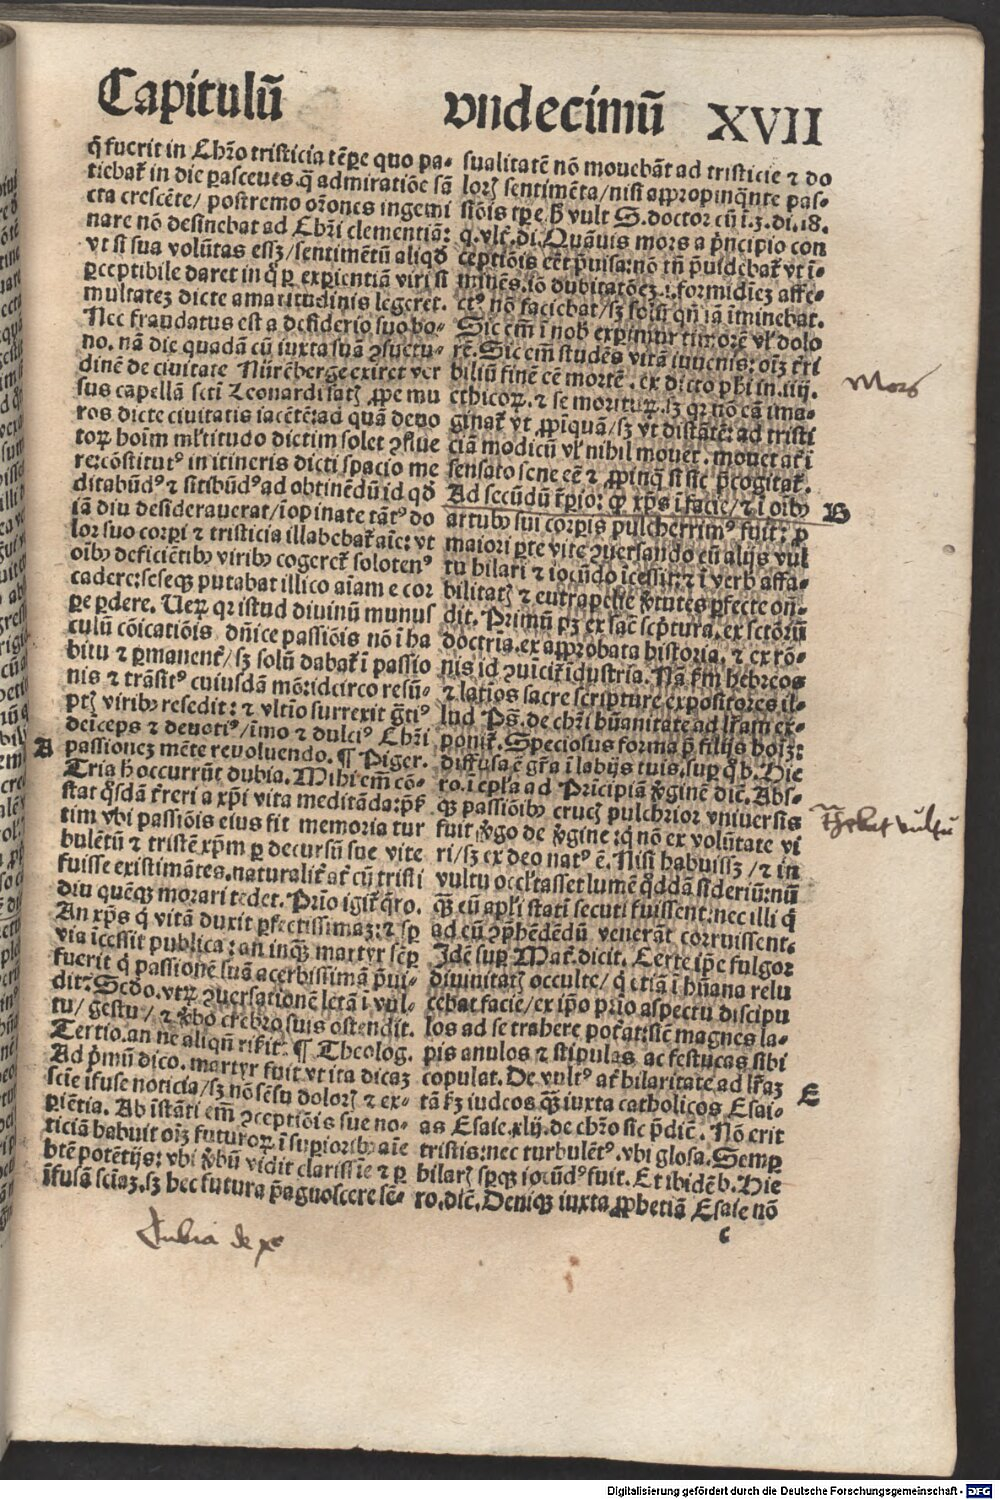 Capitulū vndecimū XVII
q̄ fuerit in Chr̄o tristicia tēꝑe quo pa-
tiebat̃ in die parasceues. q̄ admiratiōe sā
cta crescēte / postremo or̄ones ingemi
nare nō desinebat ad Chr̄i clementiā:
vt si sua volūtas essꝫ / sentimētū aliqd̄
ꝑceptibile daret in q̄ ꝑ experientiā viri si
multatez dicte amaritudinis legeret.
Nec fraudatus est a desiderio suo bo-
no. nā die quadā cū iuxta suā ꝯsuetu-
dinē de ciuitate Nürēberge exiret ver
sus capellā scti Leonardi satꝭ ꝓpe mu
ros dicte ciuitatis iacētē: ad quā deuo
toꝝ hoīm ml̃titudo dictim solet ꝯflue
re: cōstitutꝰ in itineris dicti spacio me
ditabūdꝰ ⁊ sitibūdꝰ ad obtinēdū id qd̄
iā diu desiderauerat / īopinate tātꝰ do
lor suo corꝑi ⁊ tristicia illabebat̃ aīe: vt
oībꝰ deficiētibꝰ viribꝰ cogeret̃ solotenꝰ
cadere: seseqꝫ putabat illico aīam e cor
ꝑe ꝑdere. Ueꝝ qꝛ istud diuinū munus
culū cōicatiōis dn̄ice passiōis nō ī ha
bitu ⁊ ꝑmanent̃ / sꝫ solū dabat̃ ī passio
nis ⁊ trāsitꝰ cuiusdā mō: idcirco resū-
ptꝭ viribꝰ resedit: ⁊ vltīo surrexit gr̄tiꝰ
deīceps ⁊ deuotiꝰ / īmo ⁊ dulciꝰ Chr̄i
A passionez mēte reuoluendo. ¶ Piger.
Tria h̄ occurrūt dubia. Mihi em̄ cō-
stat q̄sdā t̃reri a xp̄i vita meditāda: p̄s̄
tim vbi passiōis eius fit memoria tur
bulētū ⁊ tristē xp̄m ꝑ decursū sue vite
fuisse existimātes. naturalit̃ at̃ cū tristi
diu quēqꝫ morari tedet. Prīo igit̃ q̄ro.
An xp̄s q̄ vitā duxit ꝑfectissimaꝫ: ⁊ sꝑ
via īcessit publica: an inqꝫ martyr sēꝑ
fuerit q̄ passionē suā acerbissimā p̄ui-
dit: Sc̄do. vtꝝ ꝯuersationē letā ī vul-
tu / gestu / ⁊ v̄bo crebro suis ostendit.
Tertio. an ne aliqn̄ riẜit. ¶ Theolog.
Ad p̄mū dico. martyr fuit vt ita dicaꝫ
sciē īfuse noticia / sꝫ nō sēsu dolorꝭ ⁊ ex-
ꝑiētia. Ab īstāti em̄ ꝯceptiōis sue no-
ticiā habuit oīꝫ futuroꝝ ī suꝑioribꝰ aīe
btē potētijs: vbi v̄bū vidit clarissīe ⁊ ꝑ
īfusā sciaꝫ. sꝫ hec futura p̄agnoscere sē-
sualitatē nō mouebāt ad tristicie ⁊ do
lorꝭ sentimēta / nisi appropinq̄nte pas-
siōis tꝑe. h̄ vult S. doctor cū ī. 3. di. 18.
q. vlt̃. di. Quāuis mors a p̄ncipio con
ceptiōis eēt p̄uisa: nō tn̄ p̄uidebat̃ vt ī-
minēs. iō dubitatōeꝫ. i. formidīeꝫ affe-
ctꝰ nō faciebat / sꝫ solū qn̄ iā īminebat.
Sic em̄ ī nob̄ experimur timorē vl̃ dolo
rē. Sic em̄ studēs vitā iuuenis: oīꝫ t̃ri
biliū finē cē mortē. ex dicto pħi in. iij.
ethicoꝝ. ⁊ se moriturꝝ. sꝫ qꝛ nō eā ima-
ginat̃ vt ꝓpiquā / sꝫ vt distātē: ad tristi
ciā modicū vl̃ nihil mouet. mouet at̃ ī
sensato sene eē ⁊ ꝓpinq̄ si sic p̄cogitat̃.
Ad secūdū t̃pio: qꝛ xp̄s ī facie / ⁊ ī oībꝰ B
artubꝰ sui corꝑis pulcherrimꝰ fuit: ꝓ
maiori ꝑte vite ꝯuersando cū alijs vul
tu hilari ⁊ iocūdo īcessit: ⁊ ī verb̄ affa-
bilitatꝭ ⁊ eutrapelie v̄tutes ꝑfecte on-
dit. Primū pꝫ ex sac̄ scp̄tura. ex sctōrū
doctrīa. ex approbata historia. ⁊ ex rō-
nis id ꝯuīcit̃ īdustria. Nā ẜm hebreos
⁊ latīos sacre scripture expositores il-
lud Ps̄. de chr̄i hūanitate ad lr̄am ex-
ponit̃. Speciosus forma p̄ filijs hoīꝫ:
diffusa ē gr̄a ī labijs tuis. suꝑ q̄ b. Hie
ro. ī epl̃a ad Pricipiā v̄ginē dic̄. Abs-
qꝫ passiōibꝰ crucꝭ pulchrior vniuersis
fuit v̄go de v̄gine: q̄ nō ex volūtate vi
ri / sꝫ ex deo natꝰ ē. Nisi habuissꝫ / ⁊ in
vultu occl̃tasset lumē q̄ddā sideriū: nū
qꝫ eū apl̃i statī secuti fuissent: nec illi q̄
ad eū ꝯp̄hēdēdū venerāt corruissent.
Idē suꝑ Mat̃. dicit. Certe ip̄e fulgor
diuinitatꝭ occulte / q̄ etiā ī hūana relu
cebat facie / ex ip̄o prīo aspectu discipu
los ad se trahere potat̃. sic magnes la-
pis anulos ⁊ stipulas ac festucas sibi
copulat. De vultꝰ at̃ hilaritate ad lr̄aꝫ E
tā ẜꝫ iudeos qꝫ iuxta catholicos Esai-
as Esaie. xlij. de chr̄o sic p̄dic̄. Nō erit
tristis: nec turbulētꝰ. vbi glosa. Semꝑ
hilarꝭ sꝑqꝫ iocūdꝰ fuit. Et ibidē b. Hie
ro. dic̄. Deniqꝫ iuxta ꝓphetiā Esaie nō
c
Mors
Dubia de xº
Digitalisierung gefördert durch die Deutsche Forschungsgemeinschaft - DFG